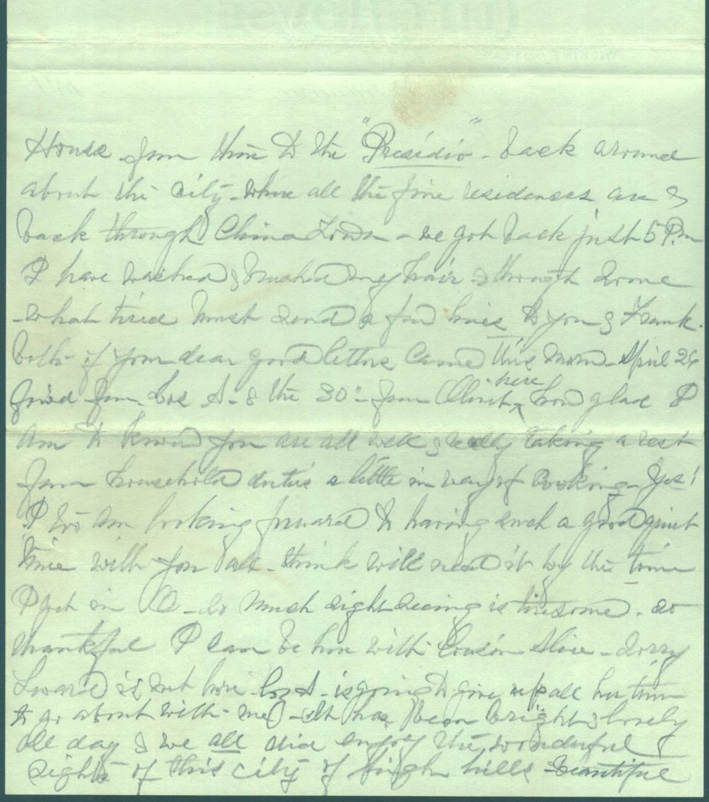 House from there to the "Presidio" - back around
about the city - where all the fine residenses are &
back through China Town - we got back just 5 P.m
I have washed & brushed my hair & though some
-what tired must send a few lines to you & Frank.
both of your dear good letters came this morn - April 26
from Los A - & the 30" from here how glad I
am to know you are all well & really taking a rest
from household duties a little in way of cooking - Yes!
I too am looking forward to having such a good quiet
time with you all - think will need it by the time
I get in O - so much sight seeing is tiresome - so
thankful I can be here with Cousin Alice - sorry
is not here - Cos A - is going to give up all her time
to go about with me - It has been bright & lovely
all day & we all did enjoy the wonderful
sights of this city of high hills beautiful